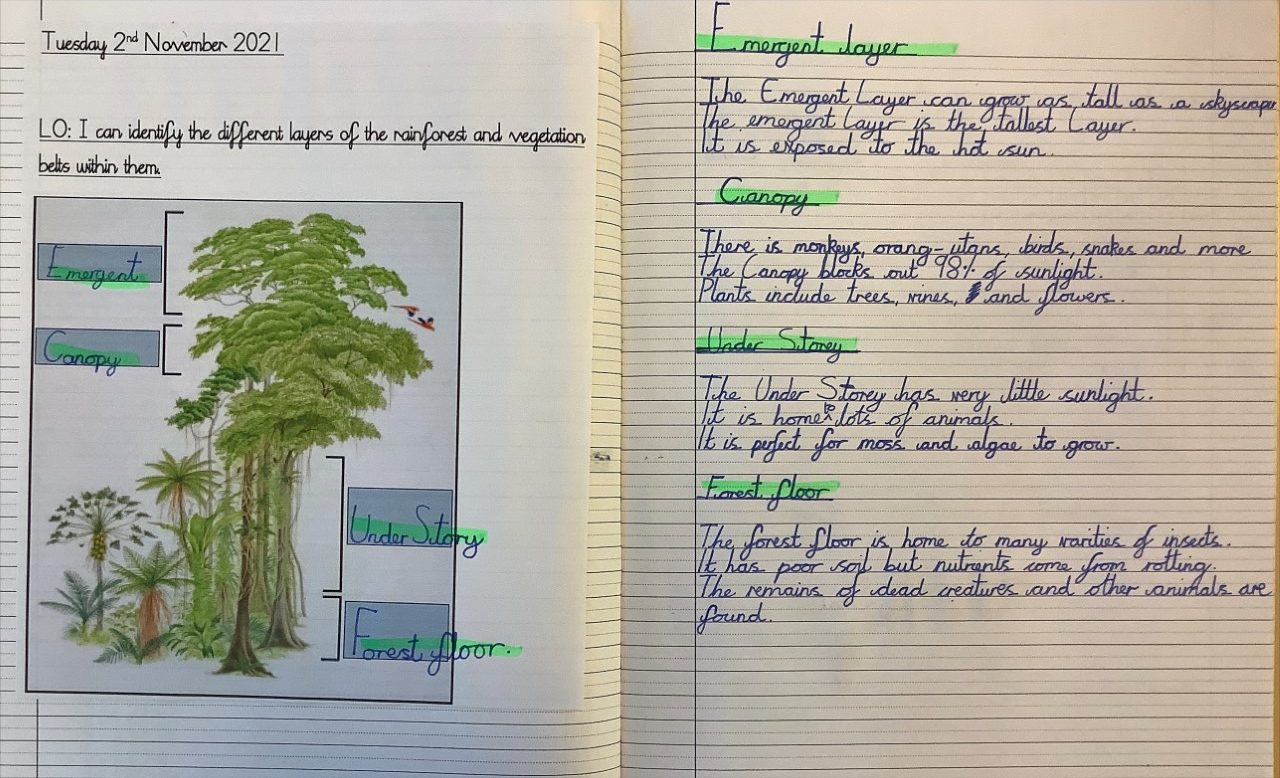 Tuesday 2nd November 2021
LO: I can identify the different layers of the rainforest and vegetation
belts within them.
Emergent
Canopy
Under Story
Forest floor.
Emergent layer
The Emergent Layer can grow as tall as a skyscraper
The emergent Layer is the tallest Layer.
It is exposed to the hot sun.
Canopy
There is monkeys, orang-utans, birds, snakes and more
The Canopy blocks out 98% of sunlight.
Plants include trees, vines, and flowers.
Under Storey
The Under Storey has very little sunlight.
It is home to lots of animals.
It is perfect for moss and algae to grow.
Forest floor
The forest floor is home to many varities of insects.
It has poor soil but nutrents come from rotting.
The remains of dead creatures and other animals are
found.